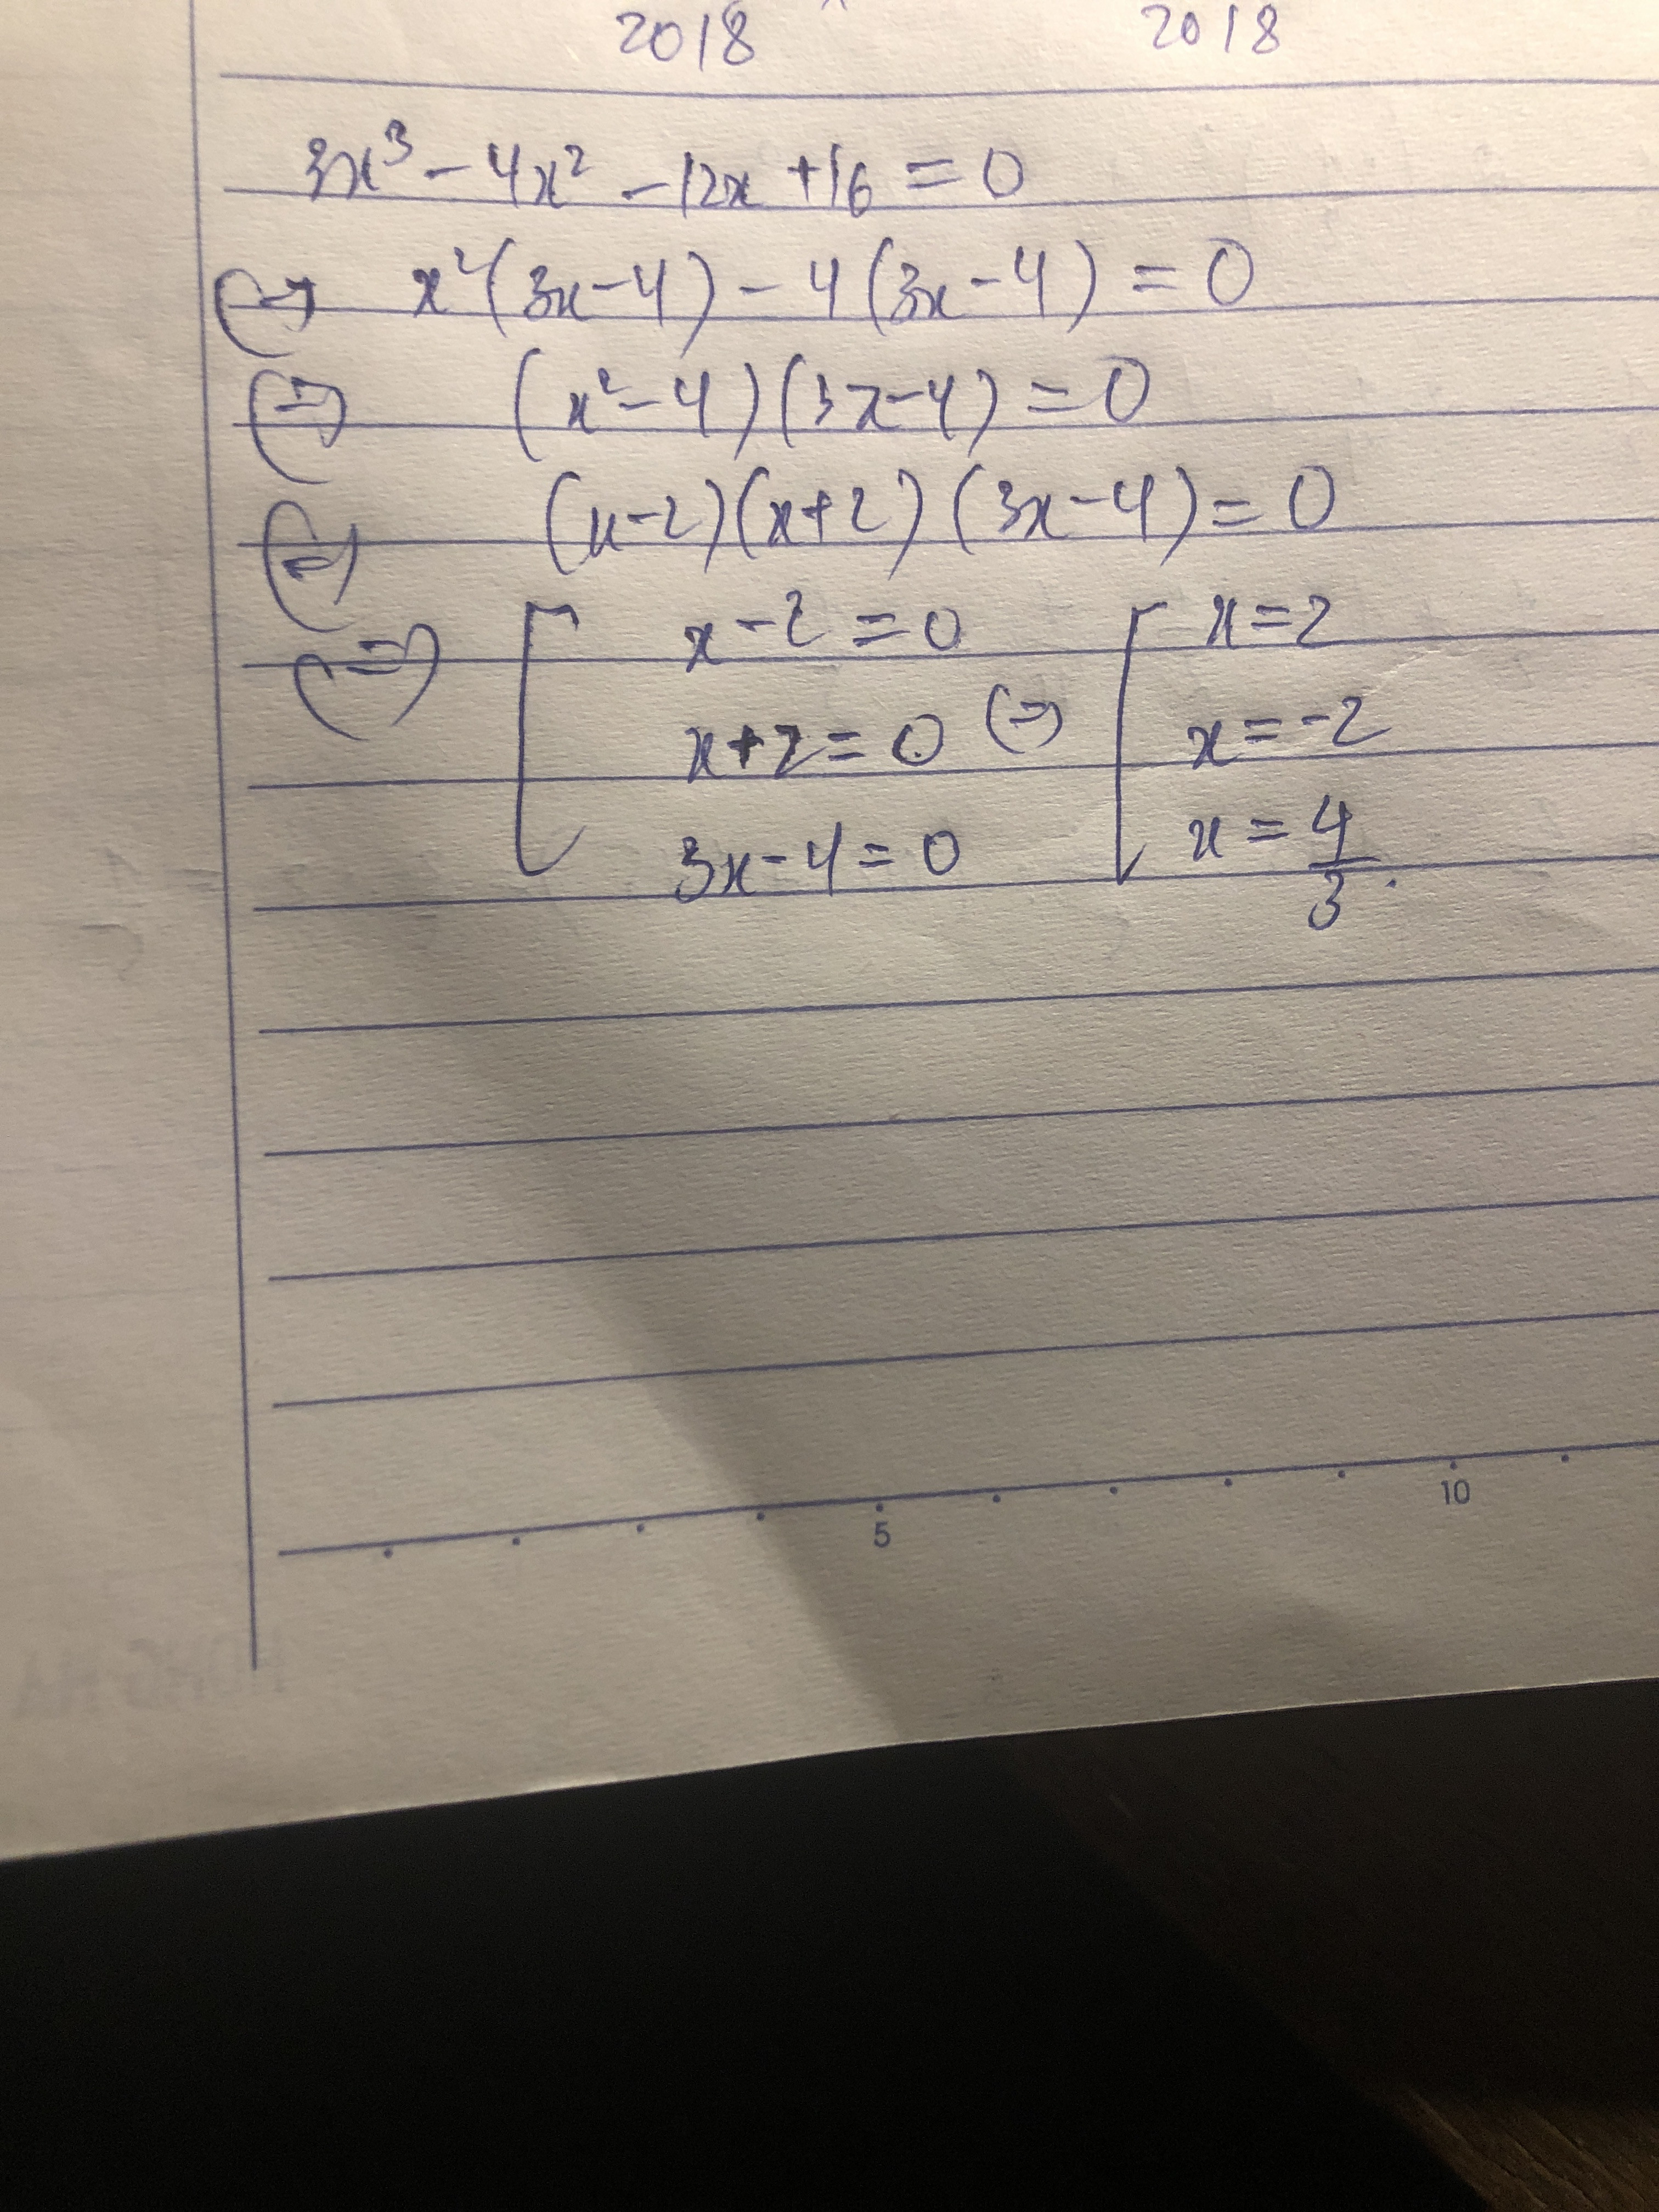 2018 2018
3x³ - 4x² - 12x + 16 = 0
(=) x²(3x-4) - 4(3x-4) = 0
(=) (x²-4)(3x-4) = 0
(=) (x-2)(x+2)(3x-4) = 0
(=) [ x-2=0 [ x=2
x+2=0 (=) x=-2
3x-4=0 x=4/3.
5 10